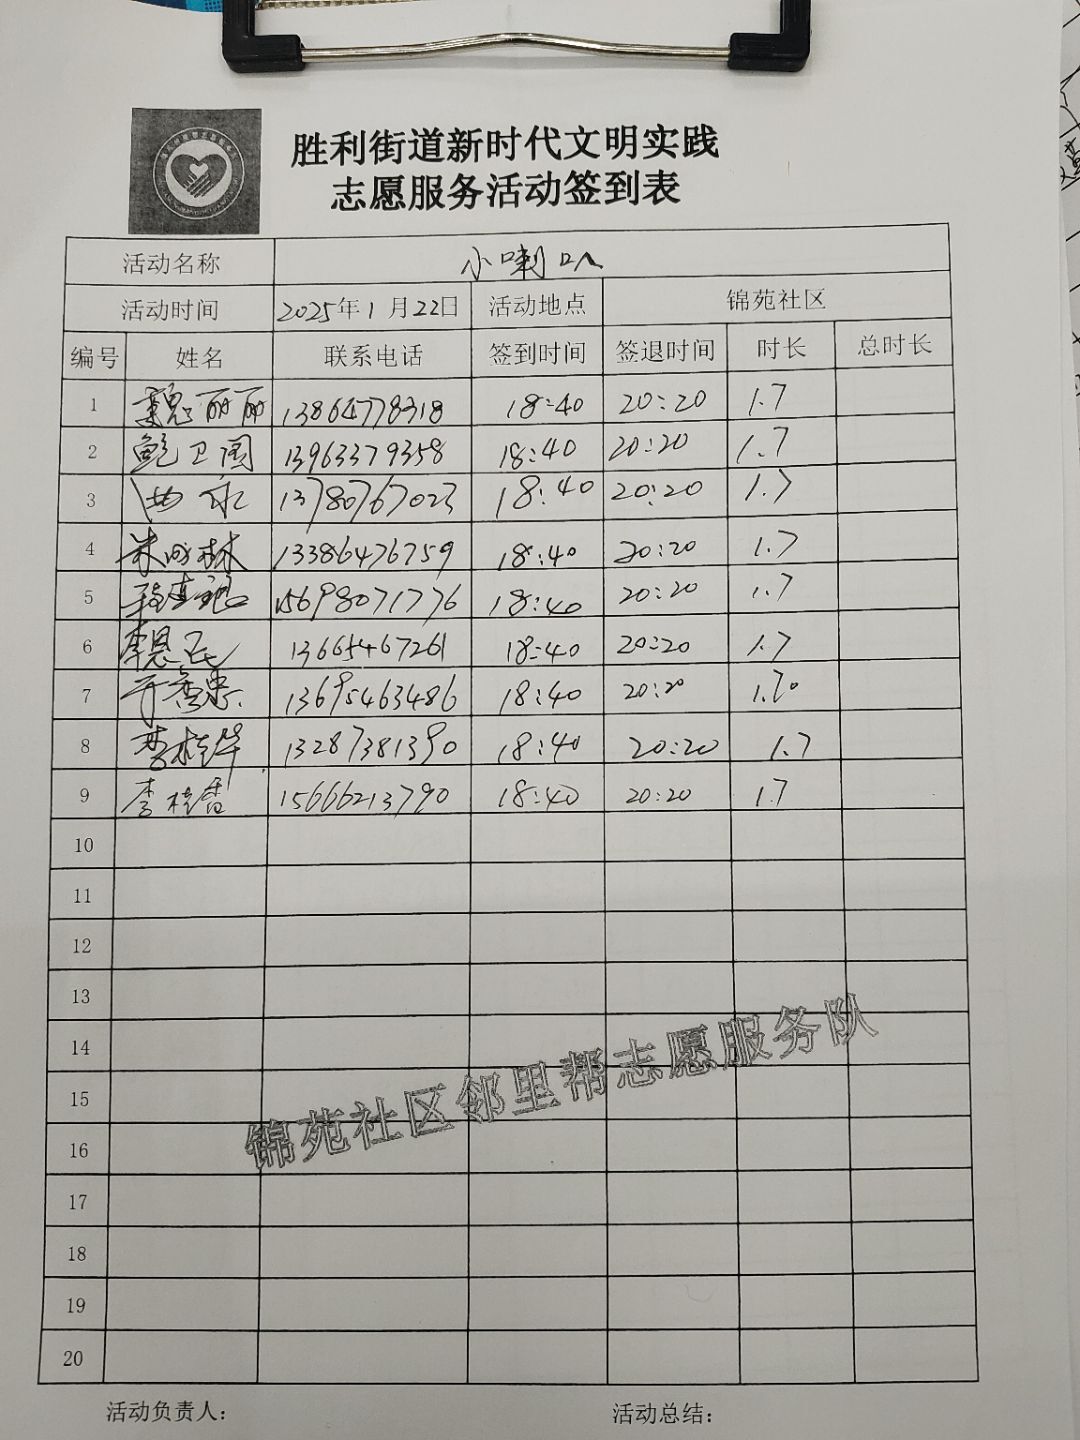 胜利街道新时代文明实践
志愿服务活动签到表
活动名称 小喇叭
活动时间 2025年1月22日 活动地点 锦苑社区
编号 姓名 联系电话 签到时间 签退时间 时长 总时长
1 魏丽丽 13864778318 18:40 20:20 1.7
2 鲍卫国 13963379358 18:40 20:20 1.7
3 曲永 13780767023 18:40 20:20 1.7
4 朱成林 13386476759 18:40 20:20 1.7
5 15698071776 18:40 20:20 1.7
6 李恩民 13665467261 18:40 20:20 1.7
7 13695463486 18:40 20:20 1.70
8 李桂华 13287381390 18:40 20:20 1.7
9 李桂香 15666213790 18:40 20:20 1.7
10
11
12
13
14
15
16
17
18
19
20
锦苑社区邻里帮志愿服务队
活动负责人: 活动总结: